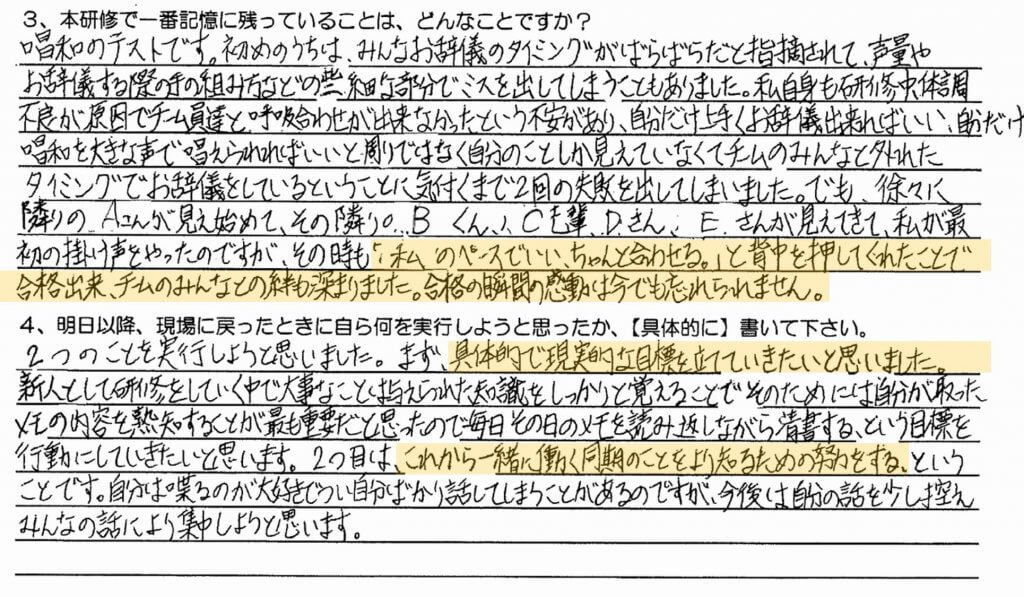 3、本研修で一番記憶に残っていることは、どんなことですか?
唱和のテストです。初めのうちは、みんなお辞儀のタイミングがばらばらだと指摘されて、声量や
お辞儀する際の手の組み方などの些細な部分でミスを出してしまうこともありました。私自身も研修中、体調
不良が原因でチーム員達と呼吸合わせが出来なかったという不安があり、自分だけ上手くお辞儀出来ればいい、自分だけ
唱和を大きな声で唱えられればいいと周りではなく自分のことしか見えていなくてチームのみんなと外れた
タイミングでお辞儀をしているということに気付くまで2回の失敗を出してしまいました。でも、徐々に
隣りのAさんが見え始めて、その隣りの、Bくん、C先輩、Dさん、Eさんが見えてきて、私が最
初の掛け声をやったのですが、その時も「私のペースでいい、ちゃんと合わせる。」と背中を押してくれたことで
合格出来、チームのみんなとの絆も深まりました。合格の瞬間の感動は今でも忘れられません。
4、明日以降、現場に戻ったときに自ら何を実行しようと思ったか、【具体的に】書いて下さい。
2つのことを実行しようと思いました。まず、具体的で現実的な目標を立てていきたいと思いました。
新人として研修をしていく中で大事なことは与えられた知識をしっかりと覚えることでそのためには自分が取った
メモの内容を熟知することが最も重要だと思ったので毎日その日のメモを読み返しながら清書する、という目標を
行動にしていきたいと思います。2つ目は、これから一緒に働く同期のことをより知るための努力をする、という
ことです。自分は喋るのが大好きでつい自分ばかり話してしまうことがあるのですが、今後は自分の話を少しは控え
みんなの話により集中しようと思います。